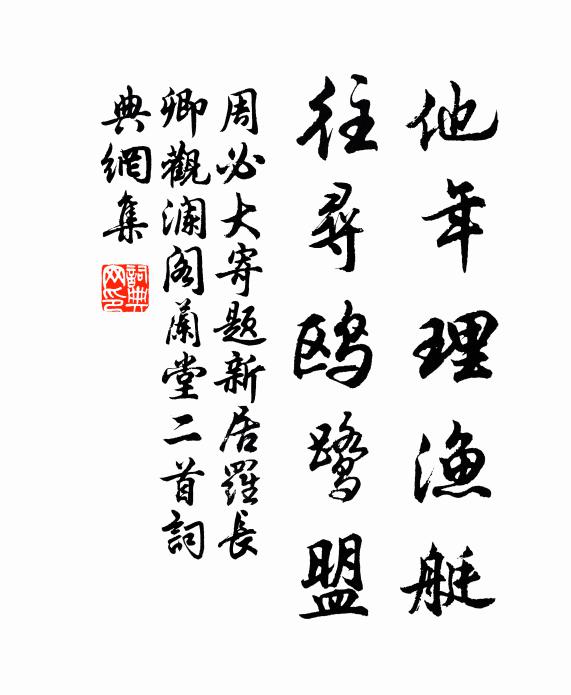 他年理漁艇
往尋鸥鹭盟
周必大寄題新居羅長
卿觀澜阁蘭堂二首詞
典網集
詞典网印